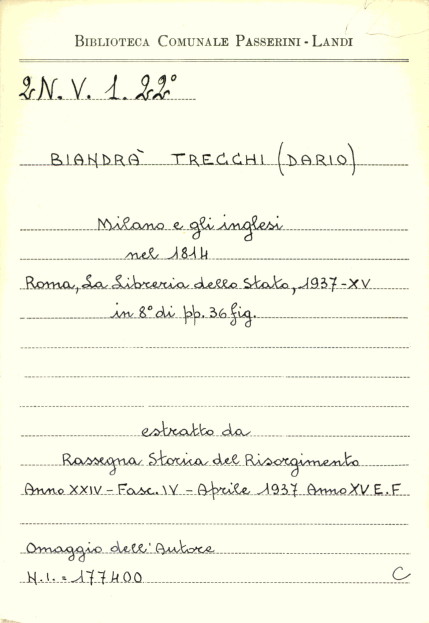 BIBLIOTECA COMUNALE PASSERINI - LANDI
2N. V. 1. 22°
BIANDRÀ TRECCHI (DARIO)
Milano e gli inglesi
nel 1814
Roma, La Libreria dello Stato, 1937-XV
in 8° di pp. 36 fig.
estratto da
Rassegna Storica del Risorgimento
Anno XXIV - Fasc. IV - Aprile 1937 Anno XV E.F
Omaggio dell'Autore
N.I. = 177400 C